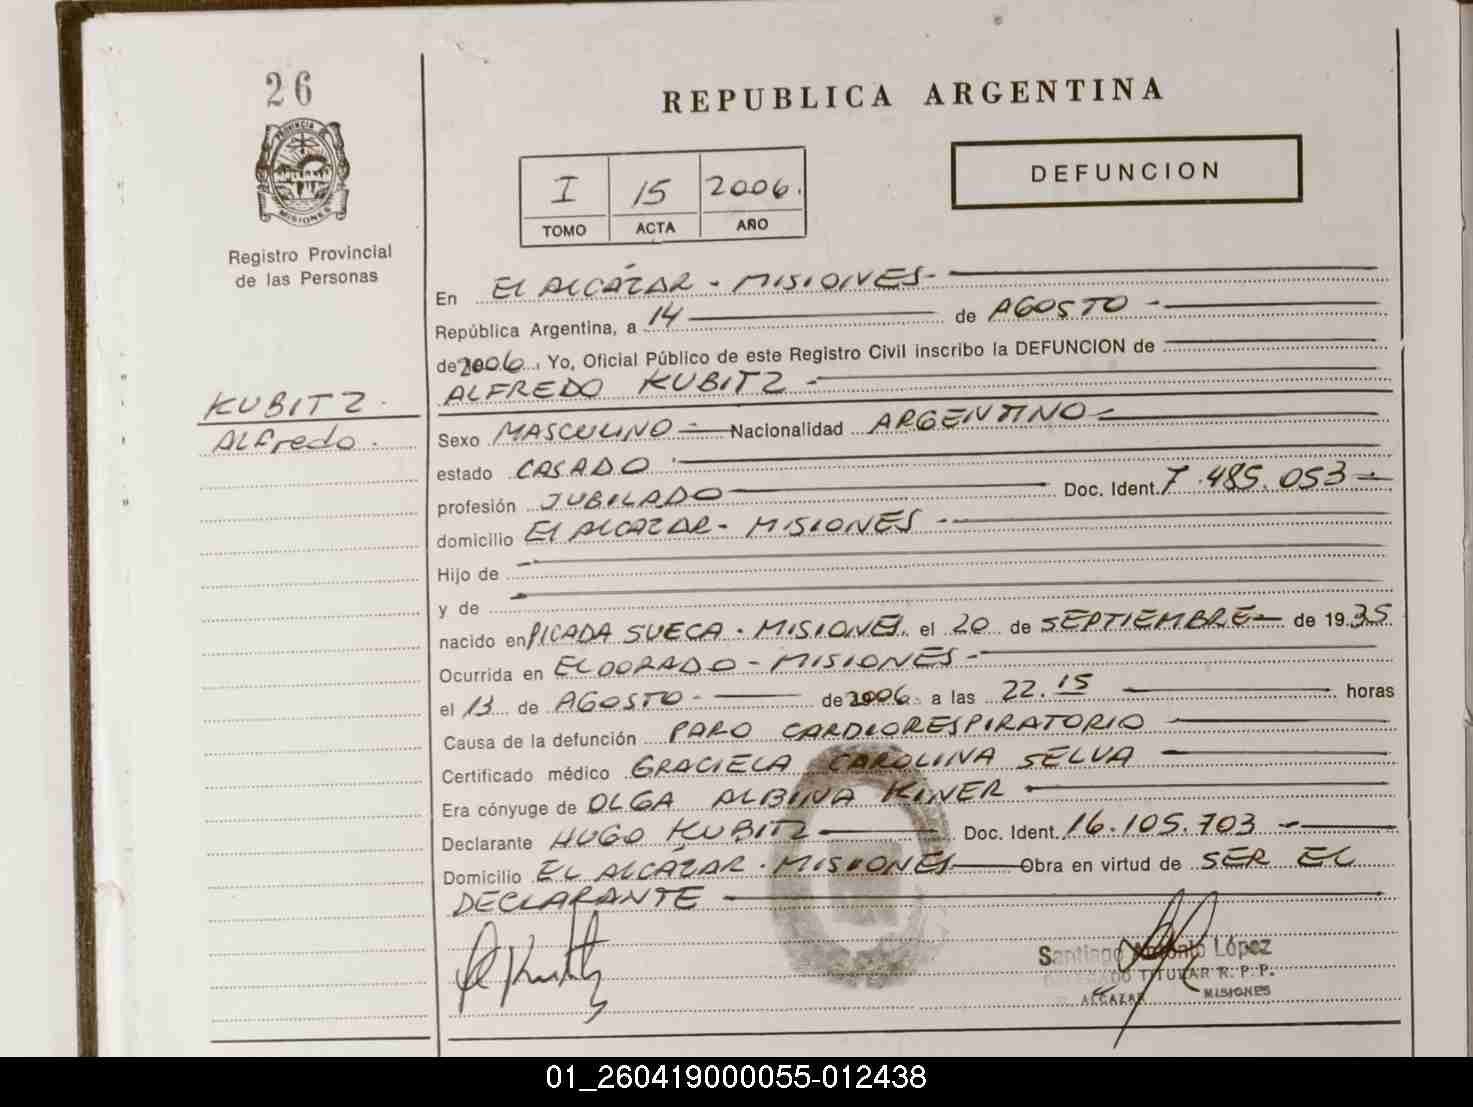 26
PROVINCIA DE
MISIONES
Registro Provincial
de las Personas
KUBITZ.
ALFredo.
REPUBLICA ARGENTINA
DEFUNCION
I 15 2006.
TOMO ACTA AÑO
En EL ALCÁZAR - MISIONES-
República Argentina, a 14 de AGOSTO -
de 2006. Yo, Oficial Público de este Registro Civil inscribo la DEFUNCION de
ALFREDO KUBITZ -
Sexo MASCULINO - Nacionalidad ARGENTINO -
estado CASADO
profesión JUBILADO Doc. Ident. 7.485.053 -
domicilio El ALCAZAR - MISIONES -
Hijo de
y de
nacido en PICADA SUECA - MISIONES. el 20 de SEPTIEMBRE - de 1935
Ocurrida en ELDORADO - MISIONES -
el 13 de AGOSTO - de 2006 a las 22.15 horas
Causa de la defunción PARO CARDIORESPIRATORIO
Certificado médico GRACIELA CAROLINA SELVA
Era cónyuge de OLGA ALBINA KINER
Declarante HUGO KUBITZ Doc. Ident. 16.105.703 -
Domicilio EL ALCÁZAR - MISIONES Obra en virtud de SER EL
DECLARANTE
Santiago Antonio López
TITULAR R. P. P.
ALCAZAR MISIONES
01_260419000055-012438